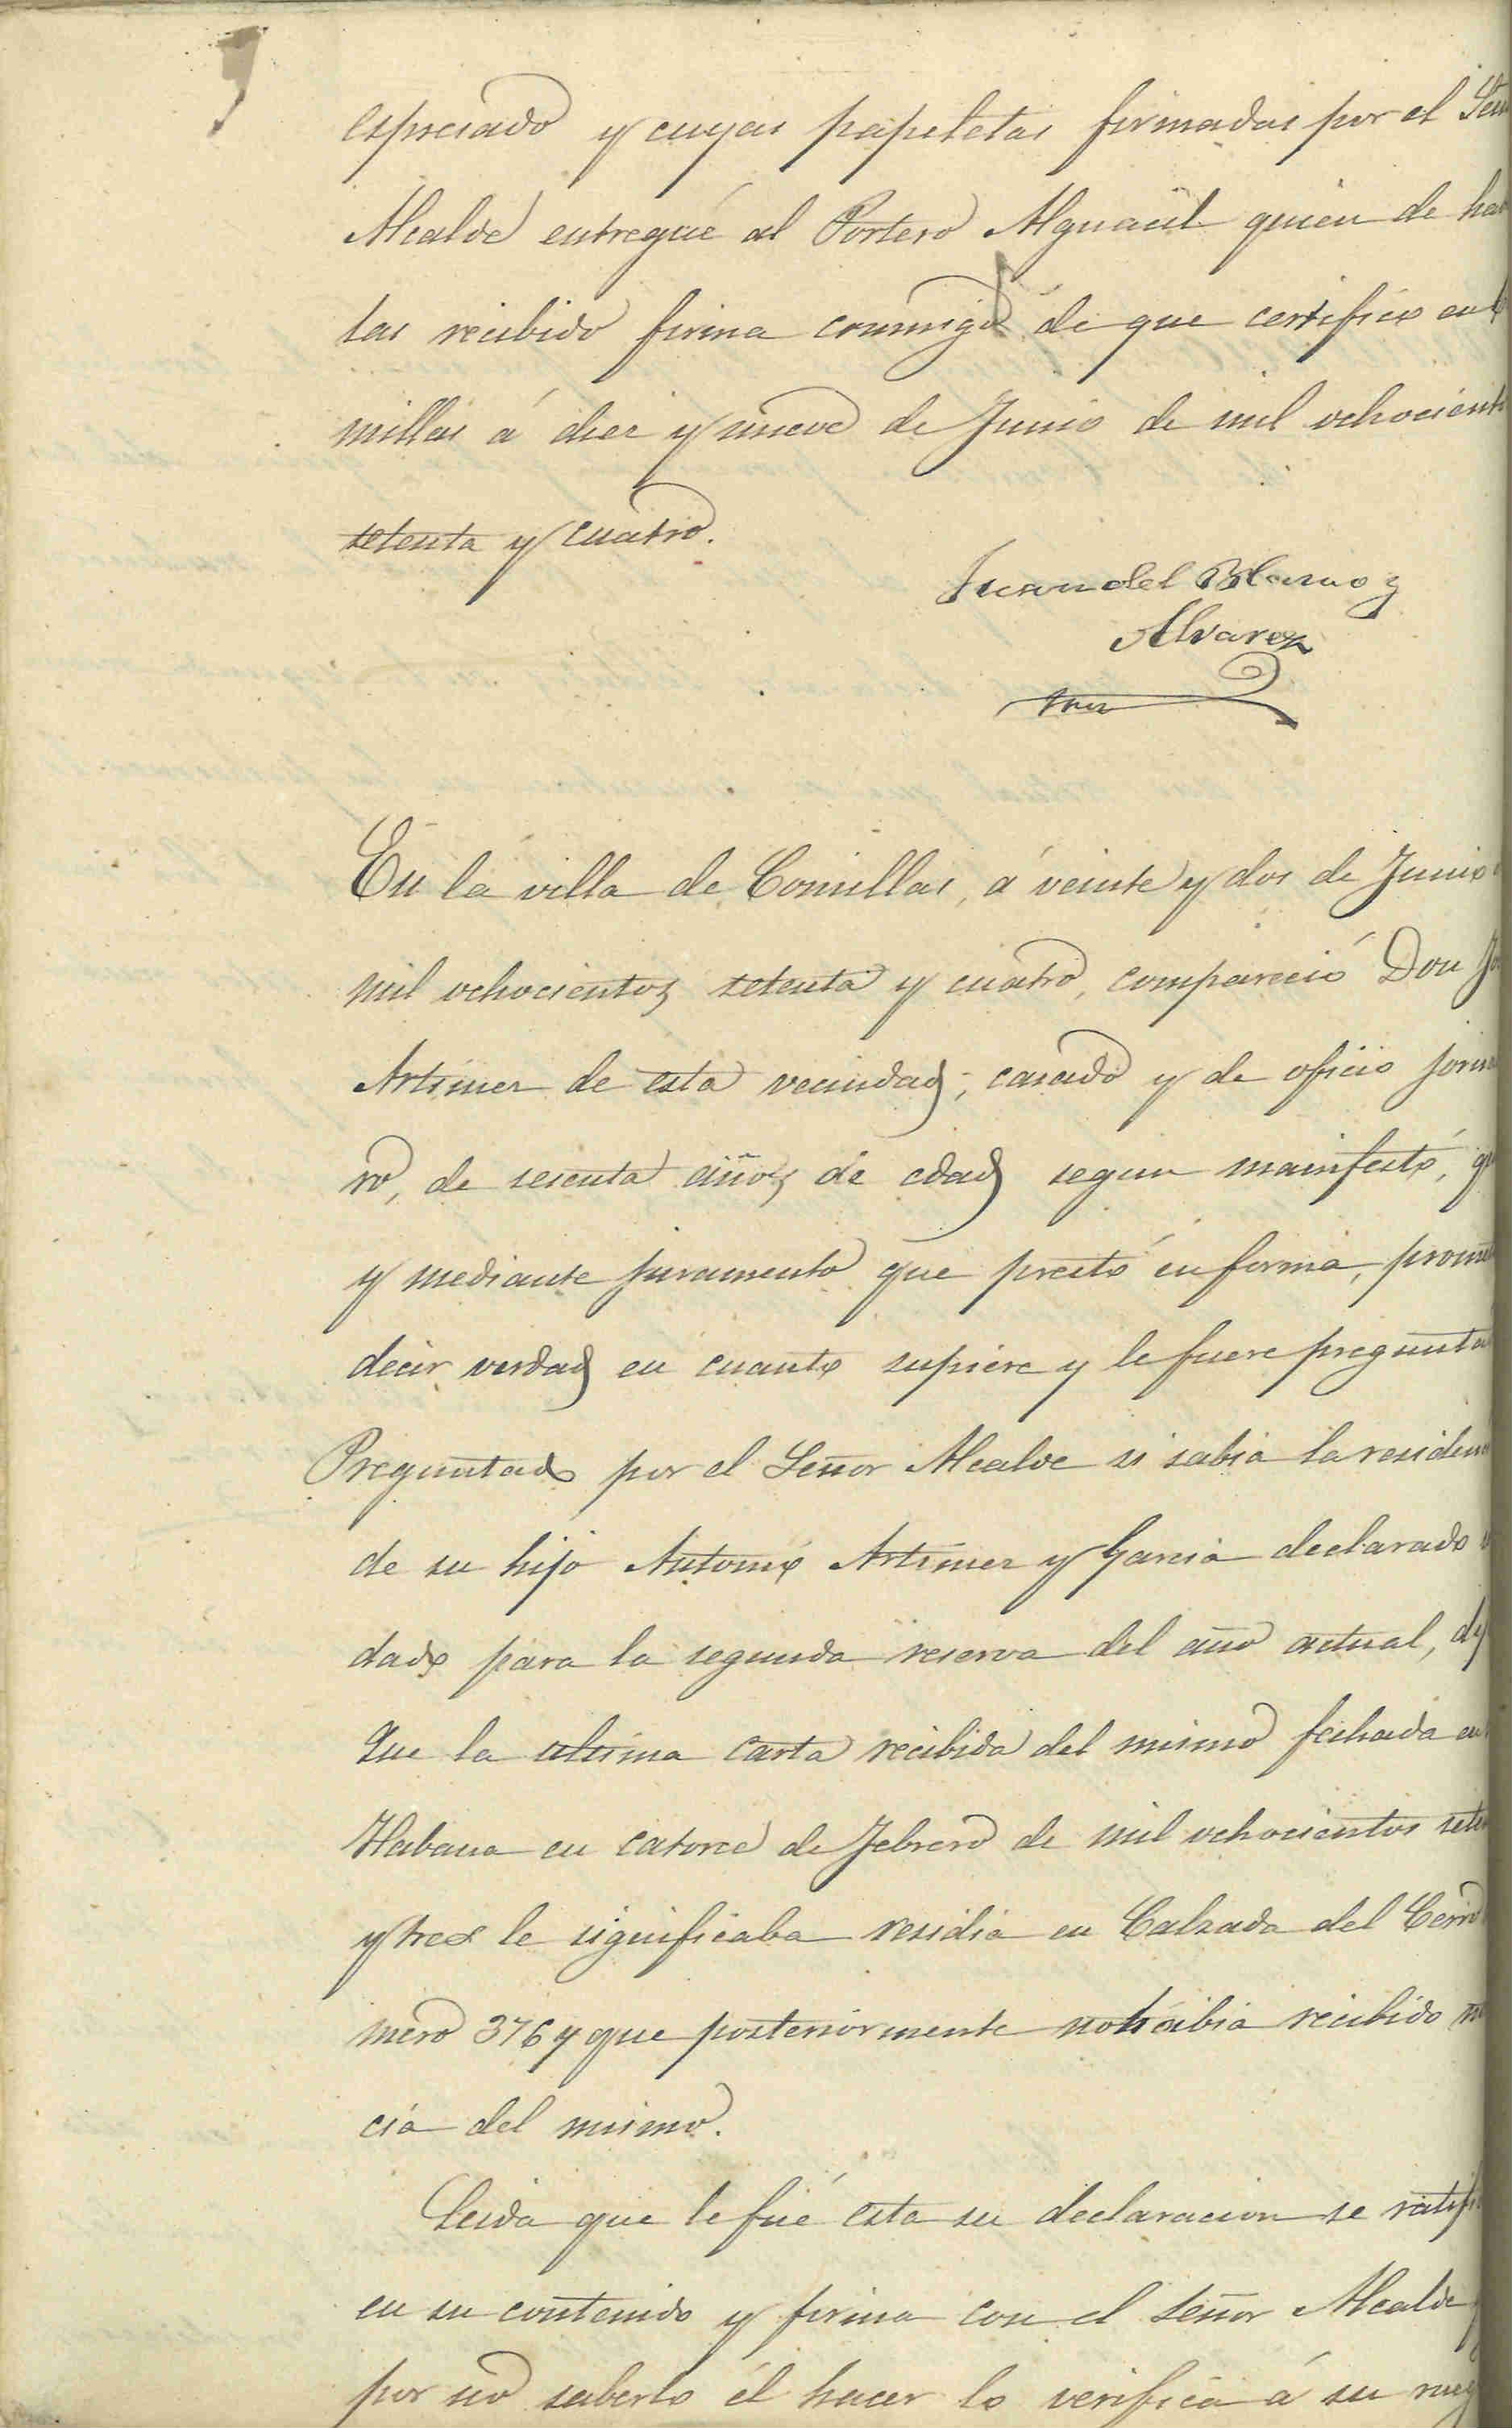 espresado y cuyas papeletas firmadas por el Señ
Alcalde entregué al Portero Alguacil quien de hab
las recibido firma conmigo de que certifico en C
millas á diez y nueve de Junio de mil ochocient
setenta y cuatro.
Juan del Blanco y
Alvarez
En la villa de Comillas, á veinte y dos de Junio
mil ochocientos setenta y cuatro, compareció Don
Artimez de esta vecindad, casado y de oficio jorna
ro, de sesenta años de edad segun manifestó, q
y mediante juramento que prestó en forma, prom
decir verdad en cuanto supiere y le fuere pregunta
Preguntado por el Señor Alcalde si sabia la residen
de su hijo Antonio Artimez y Garcia declarado
dado para la segunda reserva del año actual, dij
Que la ultima carta recibida del mismo fechada en
Habana en catorce de Febrero de mil ochocientos sete
y tres le significaba residia en Calzada del Cerro
mero 376 y que posteriormente no habia recibido n
cia del mismo.
Leida que le fué esta su declaracion se ratif
en su contenido y firma con el Señor Alcalde y
por no saberlo él hacer lo verifica á su rueg